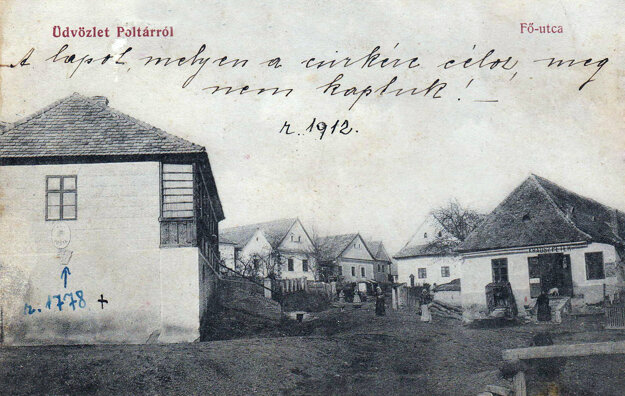 Üdvözlet Poltárról
Fő-utca
A lapot, melyen a czirkére céloz, meg
nem kaptuk! –
r. 1912.
r. 1778 +